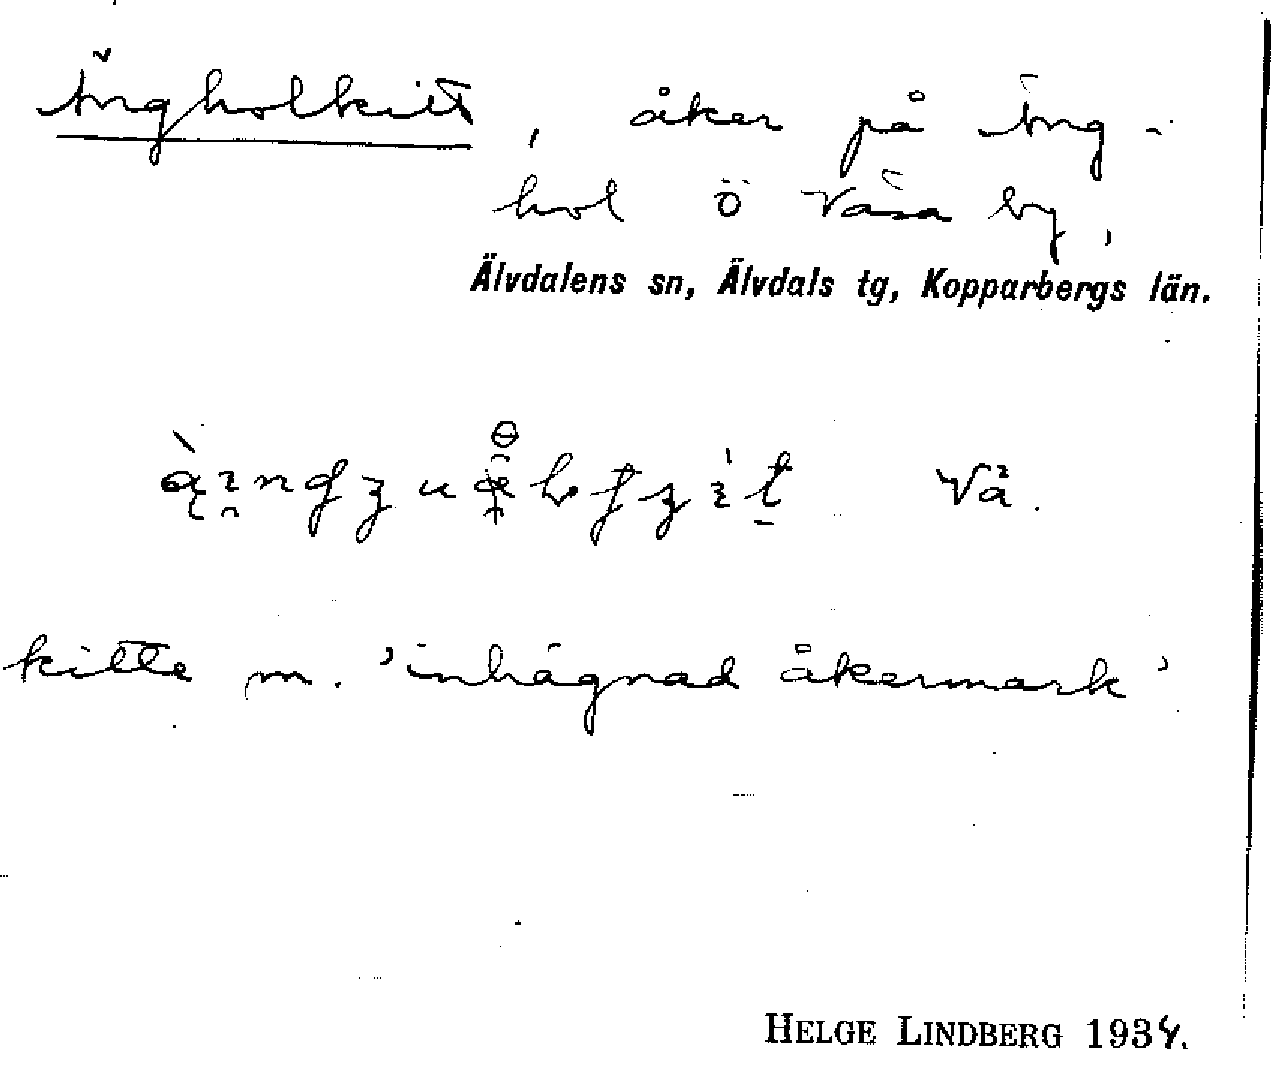 Ängholkitt, åker på Äng-
hol ö Väsa by,
Älvdalens sn, Älvdals tg, Kopparbergs län.
Vä.
kitte m. 'inhägnad åkermark'
HELGE LINDBERG 1934.